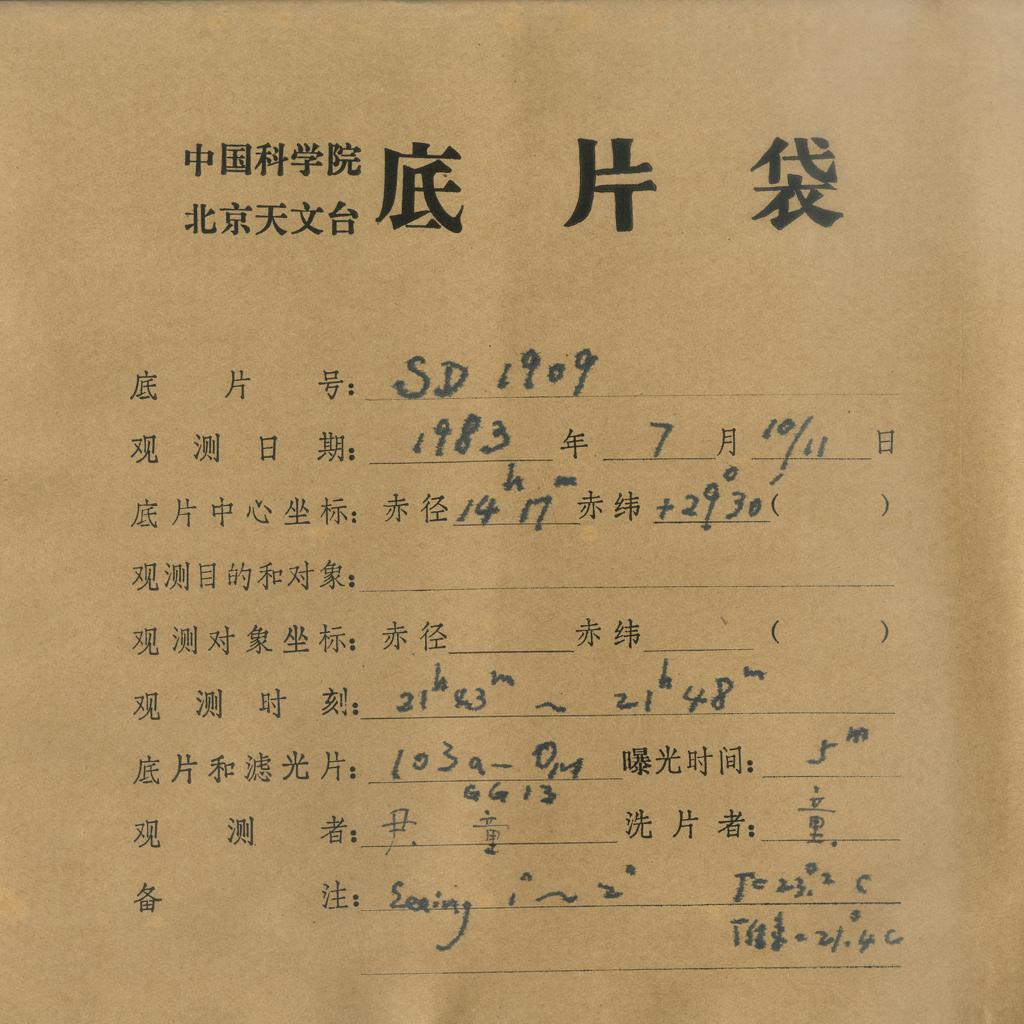 中国科学院
北京天文台
底片袋
底片号: SD 1909
观测日期: 1983年7月10/11日
底片中心坐标: 赤径14ʰ17ᵐ赤纬+29°30′( )
观测目的和对象:
观测对象坐标: 赤径 赤纬 ( )
观测时刻: 21ʰ43ᵐ ~ 21ʰ48ᵐ
底片和滤光片: 103a-O 曝光时间: 5ᵐ
GG 13
观测者: 尹 童 洗片者: 童
备注: Seeing 1″~2″ T=23.°2 C
=21.°4 C